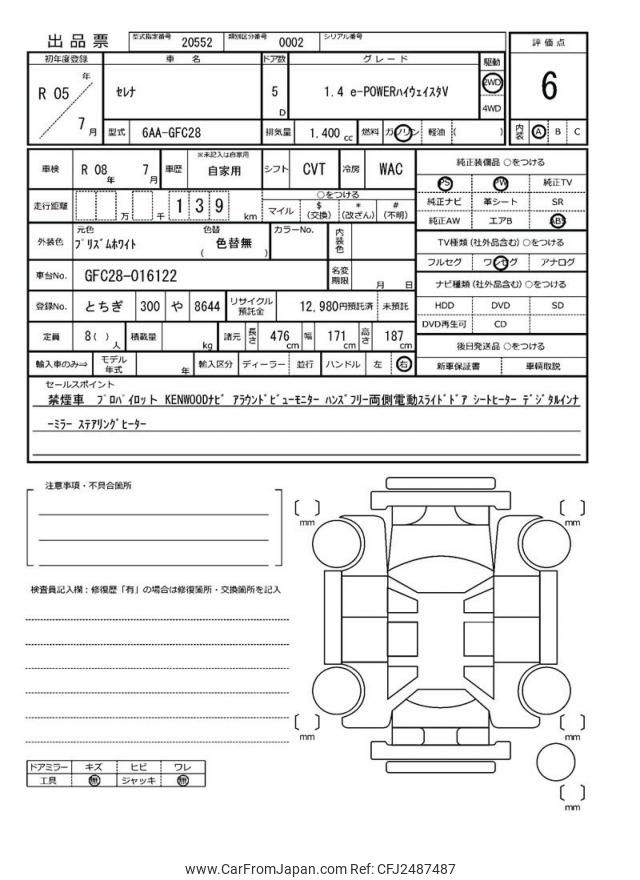 出品票 型式指定番号 20552 類別区分番号 0002 シリアル番号
評価点
6
内装 A B C
初年度登録 車名 ドア数 グレード 駆動
R 05 年 7 月
セレナ
5 D
1.4 e-POWERハイウェイスタV
2WD
4WD
型式 6AA-GFC28 排気量 1,400 cc 燃料 ガソリン 軽油 ( )
車検 R 08 年 7 月 車歴 ※未記入は自家用 自家用 シフト CVT 冷房 WAC
走行距離 万 千 1 3 9 km
○をつける
マイル $(交換) *(改ざん) #(不明)
外装色 元色 プリズムホワイト 色替 ( 色替無 ) カラーNo. 内装色
車台No. GFC28-016122 名変期限 月 日
登録No. とちぎ 300 や 8644 リサイクル預託金 12,980円預託済 未預託
定員 8( ) 人 積載量 kg 諸元 長さ 476 cm 幅 171 cm 高さ 187 cm
輸入車のみ⇒ モデル年式 年 輸入区分 ディーラー 並行 ハンドル 左 右
純正装備品 ○をつける
PS PW 純正TV
純正ナビ 革シート SR
純正AW エアB ABS
TV種類(社外品含む) ○をつける
フルセグ ワンセグ アナログ
ナビ種類(社外品含む) ○をつける
HDD DVD SD
DVD再生可 CD
後日発送品 ○をつける
新車保証書 車輌取説
セールスポイント
禁煙車 プロパイロット KENWOODナビ アラウンドビューモニター ハンズフリー両側電動スライドドア シートヒーター デジタルインナ
ーミラー ステアリングヒーター
注意事項・不具合箇所
検査員記入欄:修復歴「有」の場合は修復箇所・交換箇所を記入
ドアミラー キズ ヒビ ワレ
工具 無 ジャッキ 無
[ ] mm
[ ] mm
[ ] mm
[ ] mm
[ ] mm
www.CarFromJapan.com Ref: CFJ2487487